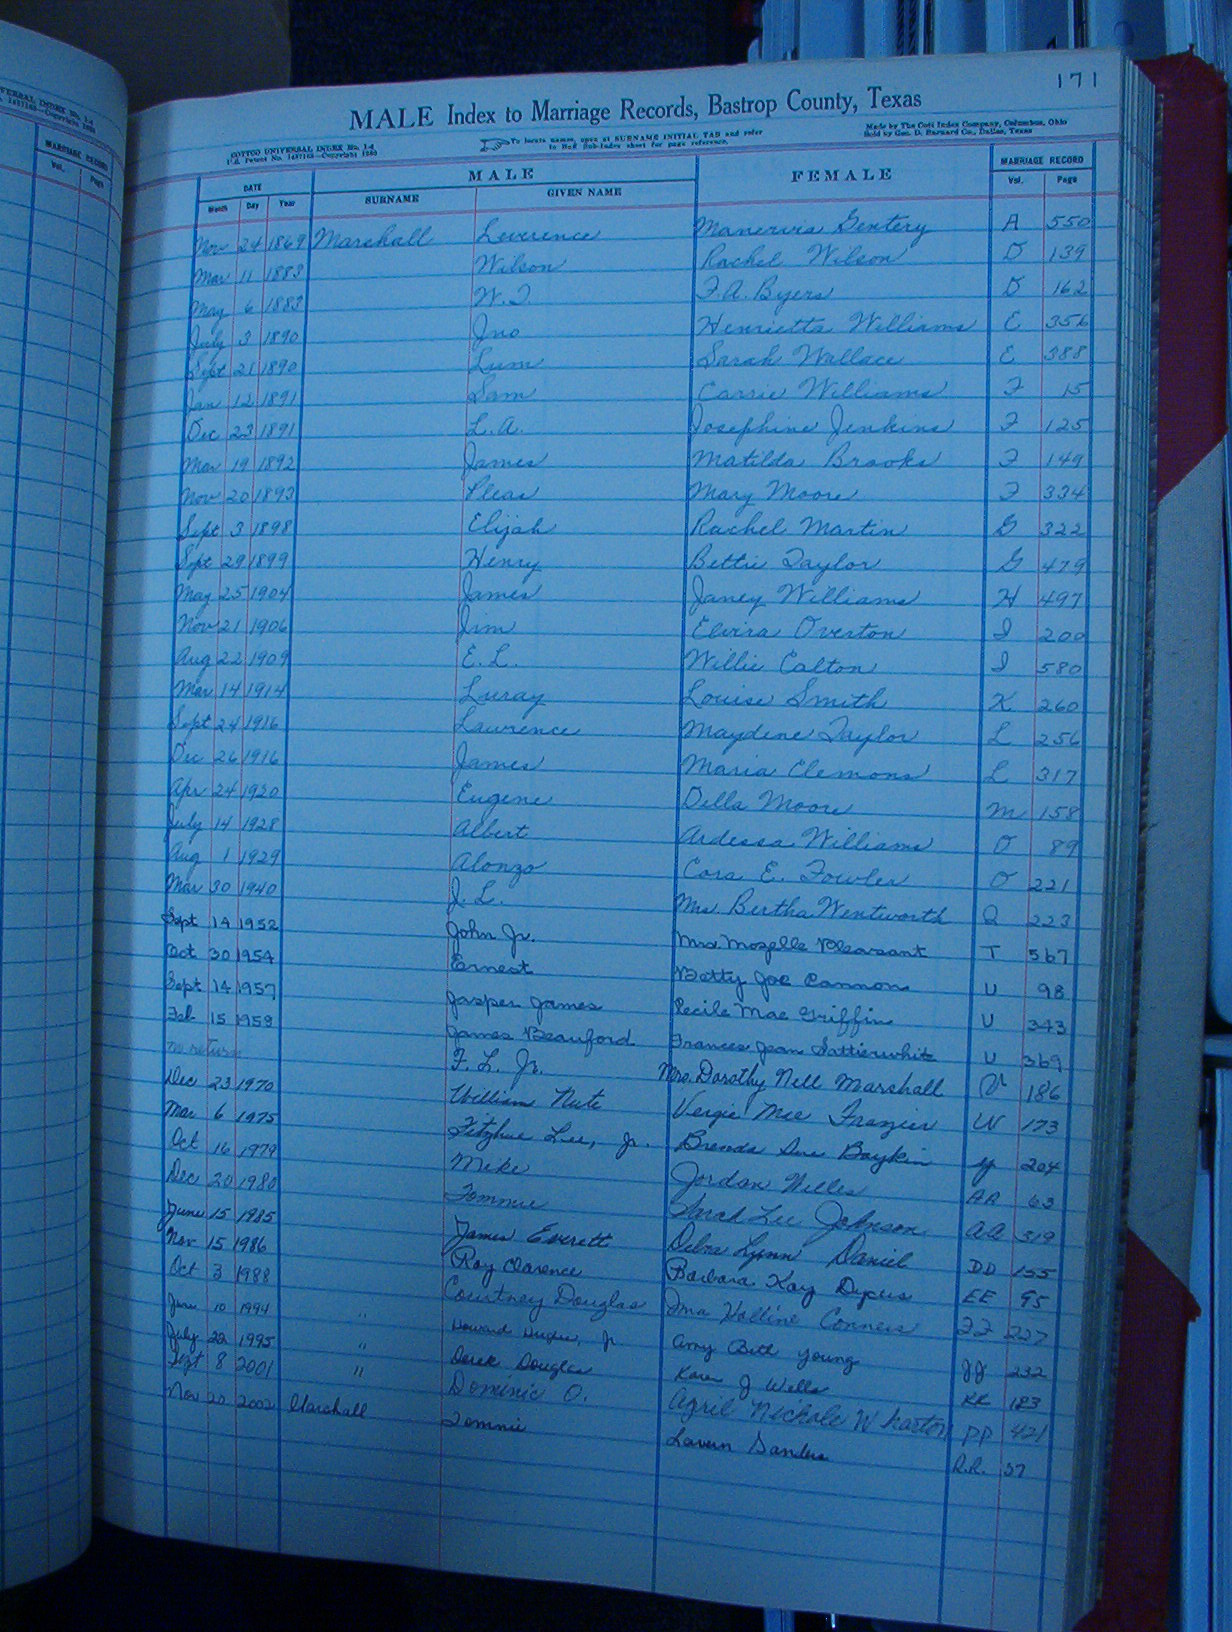 171
MALE Index to Marriage Records, Bastrop County, Texas
COTTCO UNIVERSAL INDEX No. 1-4
To locate names, open at SURNAME INITIAL TAB and refer
to Red Sub-Index sheet for page reference.
Made by The Cott Index Company, Columbus, Ohio
Sold by Geo. D. Barnard Co., Dallas, Texas
DATE MALE FEMALE MARRIAGE RECORD
Month Day Year SURNAME GIVEN NAME Vol. Page
Nov 24 1869 Marshall Leverence Manervia Gentery A 550
Mar 11 1883 Wilson Rachel Wilson D 139
May 6 1883 W.T. F.A. Byers D 162
July 3 1890 Jno Henrietta Williams E 356
Sept 21 1890 Lum Sarah Wallace E 388
Jan 12 1891 Sam Carrie Williams F 15
Dec 23 1891 L.A. Josephine Jenkins F 125
Mar 19 1892 James Matilda Brooks F 149
Nov 20 1893 Pleas Mary Moore F 334
Sept 3 1898 Elijah Rachel Martin G 322
Sept 29 1899 Henry Bettie Taylor G 479
May 25 1904 James Janey Williams H 497
Nov 21 1906 Jim Elvira Overton I 200
Aug 22 1909 E.L. Willie Calton I 580
Mar 14 1914 Luray Louise Smith K 260
Sept 24 1916 Lawrence Maydene Taylor L 256
Dec 26 1916 James Maria Clemons L 317
Apr 24 1920 Eugene Della Moore M 158
July 14 1928 Albert Ardessa Williams O 89
Aug 1 1929 Alonzo Cora E. Fowler O 221
Mar 30 1940 J.L. Mrs. Bertha Wentworth Q 223
Sept 14 1952 John Jr. Mrs. Mozelle Pleasant T 567
Oct 30 1954 Ernest Betty Joe Cannon U 98
Sept 14 1957 Jasper James Cecile Mae Griffin U 343
Feb 15 1958 James Beauford Frances Jean Satterwhite U 369
no return F.L. Jr. Mrs. Dorothy Nell Marshall V 186
Dec 23 1970 William Nute Vergie Mae Frazier W 173
Mar 6 1975 Fitzhue Lee, Jr. Brenda Sue Boykin Y 204
Oct 16 1979 Mike Jordan Welles AA 63
Dec 20 1980 Tommie Sarah Lee Johnson AA 319
June 15 1985 James Everett Debra Lynn Daniel DD 155
Nov 15 1986 Roy Clarence Barbara Kay Dycus EE 95
Oct 3 1988 Courtney Douglas Ima Halline Conners FF 227
June 10 1994 " Howard Jr Amy Beth Young JJ 232
July 22 1995 " Derek Douglas Karen J Wells KK 183
Sept 8 2001 " Dominic O. April Nichole Wharton PP 421
Nov 20 2002 Marshall Tommie Lavern Sanders R.R. 37
MARRIAGE RECORD
Vol. Page